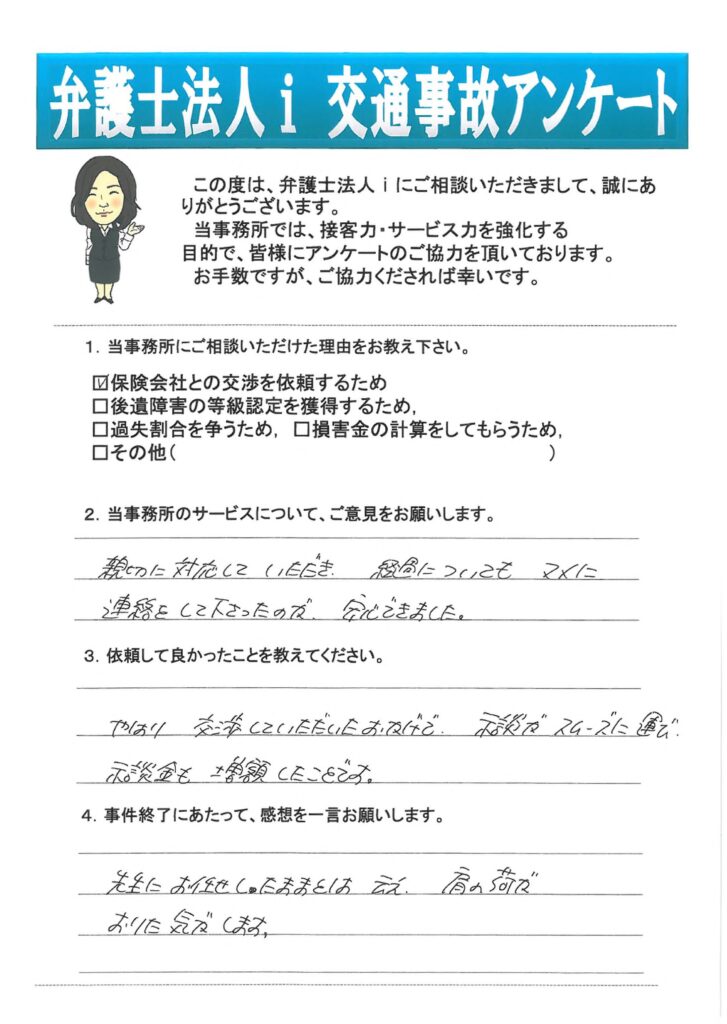 弁護士法人ｉ 交通事故アンケート
この度は、弁護士法人ｉにご相談いただきまして、誠にあ
りがとうございます。
当事務所では、接客力・サービス力を強化する
目的で、皆様にアンケートのご協力を頂いております。
お手数ですが、ご協力くだされば幸いです。
１．当事務所にご相談いただけた理由をお教え下さい。
☑保険会社との交渉を依頼するため
□後遺障害の等級認定を獲得するため,
□過失割合を争うため, □損害金の計算をしてもらうため,
□その他( )
２．当事務所のサービスについて、ご意見をお願いします。
親切に対応して いただき. 経過についても マメに
連絡をして下さったので. 安心できました。
３．依頼して良かったことを教えてください。
やはり 交渉していただいたおかげで. 示談が スムーズに運び.
示談金も 増額したことです。
４．事件終了にあたって、感想を一言お願いします。
先生に お任せしたままとは 云え. 肩の荷が
おりた気がします。